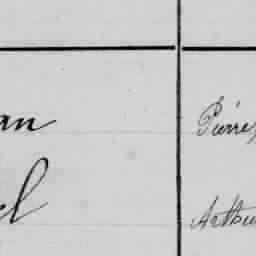 an Pierre,
el Arthu